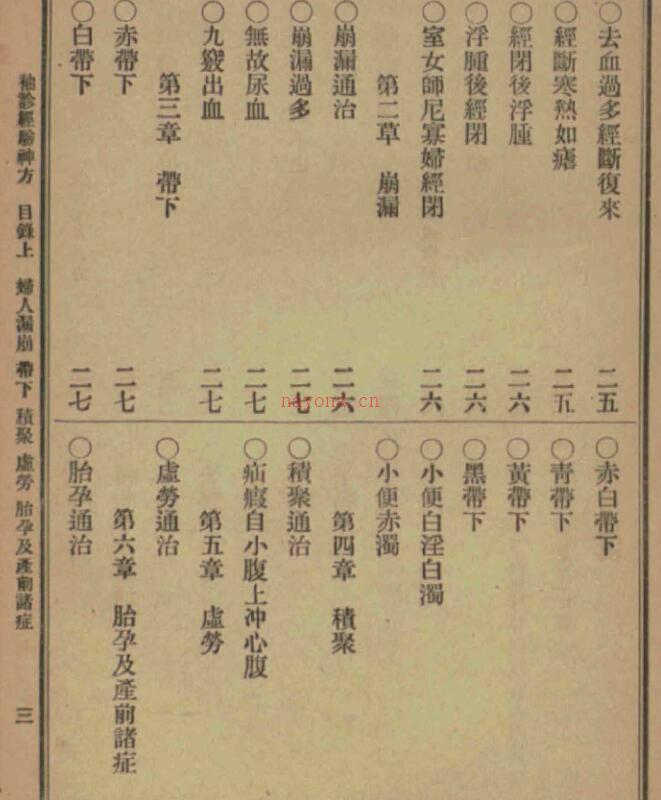 ○去血過多經斷復來 二五
○經斷寒熱如瘧 二五
○經閉後浮腫 二六
○浮腫後經閉 二六
○室女師尼寡婦經閉 二六
第二草 崩漏
○崩漏通治 二六
○崩漏過多 二七
○無故尿血 二七
○九竅出血 二七
第三章 帶下
○赤帶下 二七
○白帶下 二七
○赤白帶下
○青帶下
○黃帶下
○黑帶下
○小便白淫白濁
○小便赤濁
第四章 積聚
○積聚通治
○疝瘕自小腹上冲心腹
第五章 虛勞
○虛勞通治
第六章 胎孕及產前諸症
○胎孕通治
袖診經驗神方 目錄上 婦人漏崩 帶下 積聚 虛勞 胎孕及產前諸症 三
nayona.cn